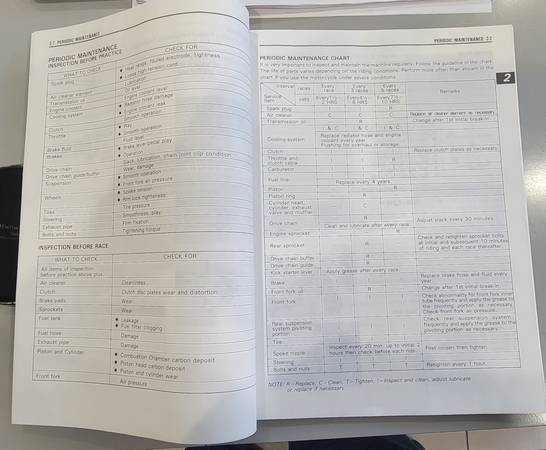 2-1 PERIODIC MAINTENANCE
PERIODIC MAINTENANCE
INSPECTION BEFORE PRACTICE
WHAT TO CHECK
CHECK FOR
Spark plug
Heat range, fouled electrode, tightness
Loose high tension cord
Air cleaner element
Transmission oil
Oil level
Engine coolant
Engine coolant level
Cooling system
Radiator hose damage
Engine coolant leak
Smooth operation
Clutch
Play
Throttle
Smooth operation
Fuel level
Brake fluid
Brakes
Operation
Slack, lubrication, chain joint clip condition
Drive chain
Wear, damage
Drive chain guide/buffer
Smooth operation
Suspension
Front fork air pressure
Wheels
Spoke tension
Rim lock tightness
Tires
Tire pressure
Steering
Smoothness, play
Exhaust pipe
Firm fixation
Bolts and nuts
Tightening torque
INSPECTION BEFORE RACE
WHAT TO CHECK
CHECK FOR
All items of inspection
before practice above plus
Air cleaner
Cleanliness
Clutch
Clutch disc plates wear and distortion
Brake pads
Wear
Sprockets
Wear
Fuel tank
Leakage
Fuel filter clogging
Fuel hose
Damage
Exhaust pipe
Damage
Piston and Cylinder
Combustion Chamber carbon deposit
Piston head carbon deposit
Piston and cylinder wear
Front fork
Air pressure
PERIODIC MAINTENANCE 2-2
PERIODIC MAINTENANCE CHART
It is very important to inspect and maintain the machine regularly. Follow the guideline in the chart.
The life of parts varies depending on the riding conditions. Perform more often than shown in the
chart if you use the motorcycle under severe conditions.
2
Interval
races
Every race
Every 3 races
Every 5 races
Remarks
Service Item
HRS
Spark plug
Air cleaner
C
Replace air cleaner element as necessary.
Transmission oil
R
Change after 1st initial break-in.
Cooling system
I & C
Replace radiator hose and engine
coolant every year.
Flushing for overhaul or storage.
Clutch
Replace clutch plates as necessary.
Throttle and
clutch cable
R
Carburetor
Fuel line
Replace every 4 years.
Piston
R
Piston ring
R
Cylinder head,
cylinder, exhaust
valve and muffler
C
Drive chain
R
Clean and lubricate after every race.
Adjust slack every 30 minutes.
Engine sprocket
R
Rear sprocket
R
Check and retighten sprocket bolts
at initial and subsequent 10 minutes
of riding and each race thereafter.
Drive chain buffer
R
Drive chain guide
R
Kick starter lever
Apply grease after every race.
Brake
Replace brake hose and fluid every
year.
Front fork oil
R
Change after 1st initial break-in.
Front fork
Check abnormality for front fork inner
tube frequently and apply the grease to
the pivoting portion as necessary.
Check front fork air pressure.
Rear suspension
system pivoting
portion
Check rear suspension system
frequently and apply the grease to the
pivoting portion as necessary.
Tire
Spoke nipple
Inspect every 20 min. up to initial 2
hours then check before each ride.
First loosen then tighten.
Steering
Bolts and nuts
T
T
T
Retighten every 1 hour.
NOTE: R–Replace, C–Clean, T–Tighten, I–Inspect and clean, adjust lubricate
or replace if necessary.